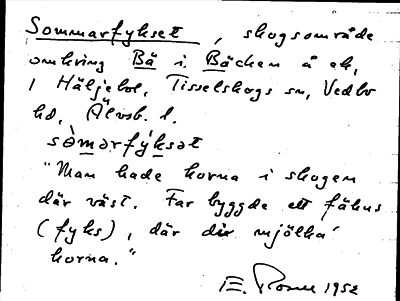 Sommarfykset, skogsområde
omkring Bä i Bäcken å ek,
i Häljebol, Tisselskogs sn, Vedbo
hd, Älvsb. l.
sòmərfýksət
"Man hade korna i skogen
där väst. Far byggde ett fähus
(fyks), där di mjölka'
korna."
E. 1952